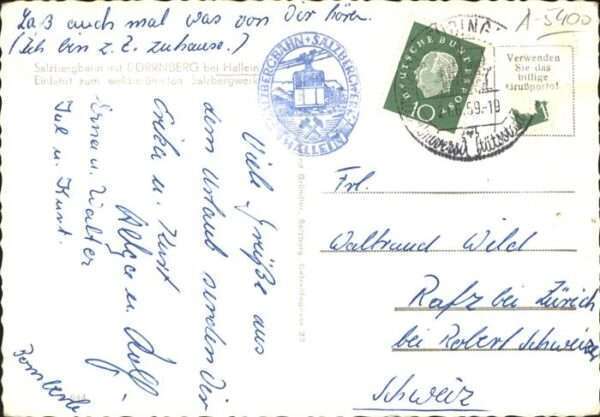 Laß auch mal was von Dir hören.
(Ich bin z. Z. zuhause.)
Salzbergbahn mit DÜRRNBERG bei Hallein
Einfahrt zum Salzbergwerk
Viele Grüße aus
dem Urlaub senden Dir
Erika u. Kurt
Helga u. Rolf
Erna u. Walter
u. Kurt.
SALZBERGBAHN SALZBERGWERK
HALLEIN
DEUTSCHE BUNDESPOST
10
59-19
Verwenden
Sie das
billige
Grußporto!
A-5400
Frl.
Waltraud Wild
Rafz bei Zürich
bei Robert Schweizer
Schweiz